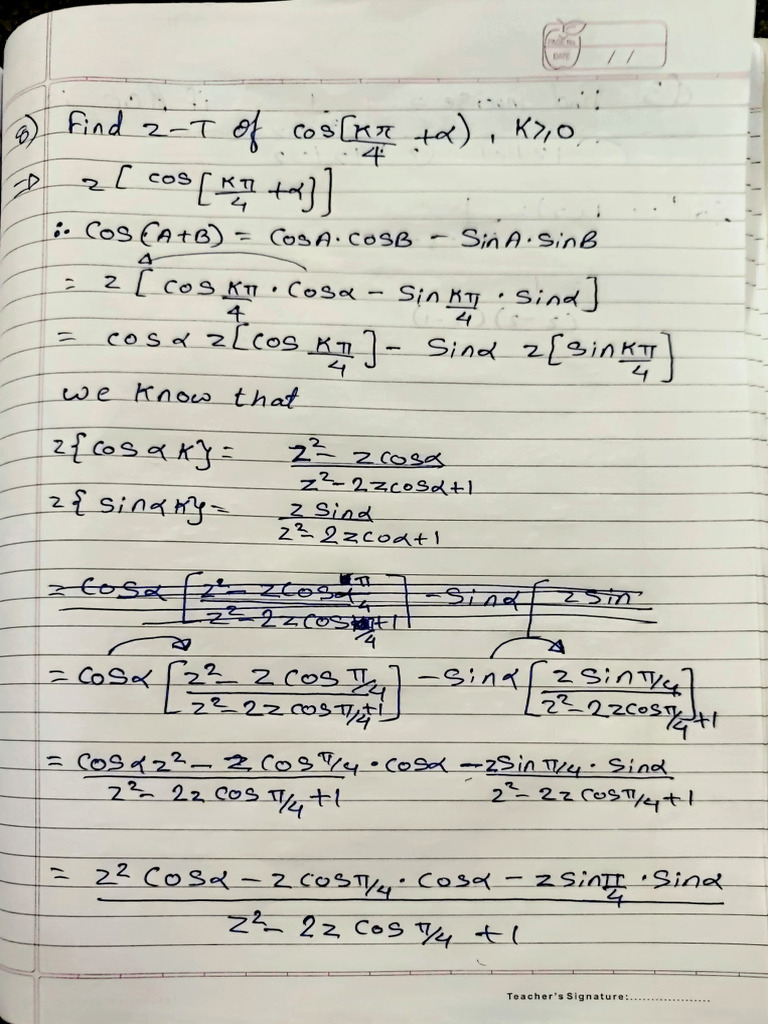 PAGE NO.
DATE / /
8) Find z-T of cos[Kπ/4 +α), K≥0
⇒ z[ cos[Kπ/4 +α}]
∴ cos(A+B) = cosA·cosB - SinA·sinB
= z[ cos Kπ/4 · cosα - sin Kπ/4 · sinα]
= cosα z[cos Kπ/4] - Sinα z[sin Kπ/4]
we know that
z{cosαK} = z²- zcosα / z²-2zcosα+1
z{ sinαK} = z sinα / z²-2zcoα+1
= cosα [z²- zcos π/4 / z²-2zcos π/4 +1] - sinα [zsin
= cosα [z²- z cos π/4 / z²-2z cos π/4 +1] - sinα [z sin π/4 / z²-2zcos π/4 +1
= cosαz² - z cos π/4 · cosα / z²- 2z cos π/4 +1 - zsin π/4 · sinα / z²-2z cos π/4 +1
= z² cosα - z cos π/4 · cosα - z sin π/4 · sinα / z²- 2z cos π/4 +1
Teacher's Signature:..................